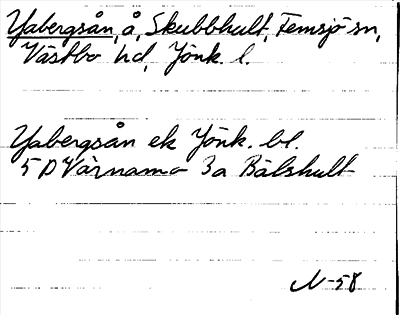 Yabergsån, å, Skubbhult, Femsjö sn,
Västbo hd, Jönk. l.
Yabergsån ek Jönk. bl.
5 D Värnamo 3a Bälshult
N-58